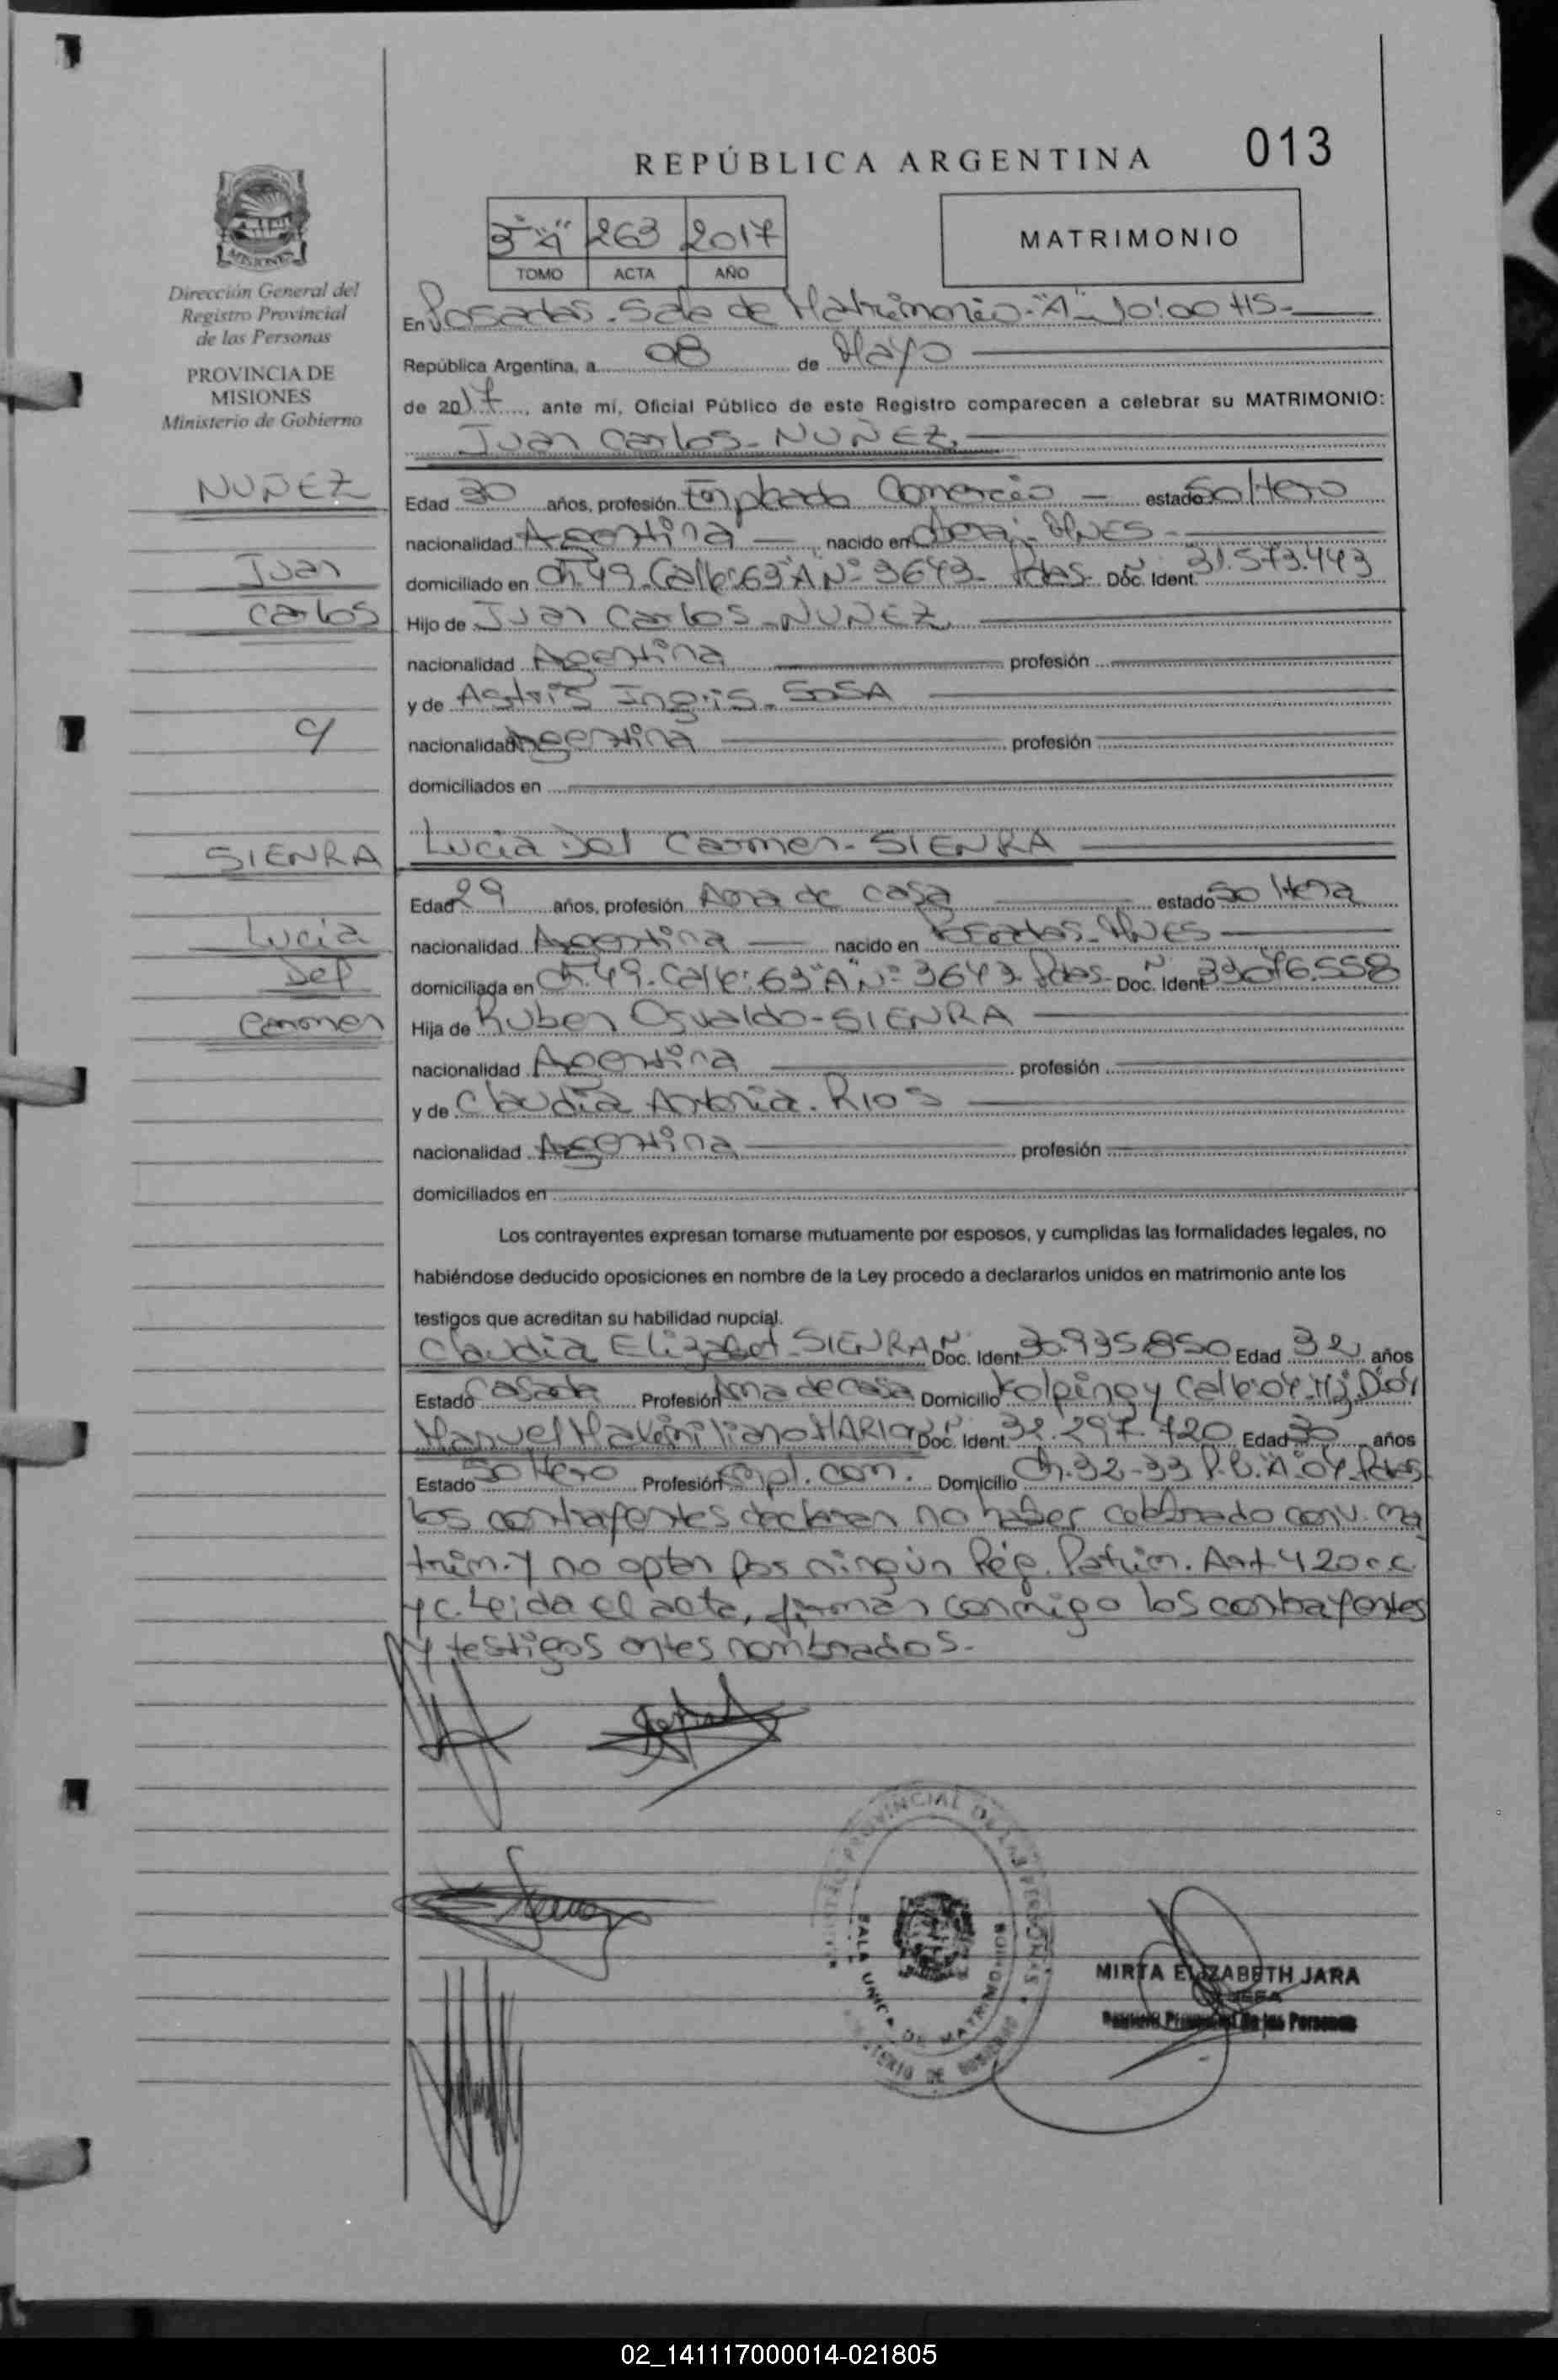 013
REPÚBLICA ARGENTINA
3° "A" 263 2017
TOMO ACTA AÑO
MATRIMONIO
Dirección General del
Registro Provincial
de las Personas
PROVINCIA DE
MISIONES
Ministerio de Gobierno
En Posadas - Sala de Matrimonio - "A" - 10:00 HS -
República Argentina, a 08 de Mayo
de 2017, ante mí, Oficial Público de este Registro comparecen a celebrar su MATRIMONIO:
Juan Carlos - NUÑEZ
NUÑEZ
Juan
Carlos
Edad 30 años, profesión Empleado Comercio - estado Soltero
nacionalidad Argentina nacido en MNES -
domiciliado en Ch. 49 - Calle: 63 "A" N° 3643 - Pdas - Doc. Ident. 31.573.443
Hijo de Juan Carlos - NUÑEZ
nacionalidad Argentina profesión
y de Astris Ingris - SOSA
y
nacionalidad Argentina profesión
domiciliados en
Lucia Del Carmen - SIENRA
SIENRA
Lucia
Del
Carmen
Edad 29 años, profesión Ama de casa estado Soltera
nacionalidad Argentina nacido en Posadas - MNES
domiciliada en Ch. 49 - Calle: 63 "A" N° 3643 - Pdas - Doc. Ident. 33.076.558
Hija de Ruben Osvaldo - SIENRA
nacionalidad Argentina profesión
y de Claudia Antonia - RIOS
nacionalidad Argentina profesión
domiciliados en
Los contrayentes expresan tomarse mutuamente por esposos, y cumplidas las formalidades legales, no
habiéndose deducido oposiciones en nombre de la Ley procedo a declararlos unidos en matrimonio ante los
testigos que acreditan su habilidad nupcial.
Claudia Elizabet - SIENRA Doc. Ident. 30.935.850 Edad 32 años
Estado Casada Profesión Ama de casa Domicilio Kolping y Calle 04
Manuel Maximiliano Doc. Ident. 32.297.720 Edad 30 años
Estado Soltero Profesión Empl. com. Domicilio Ch. 32-33 P.B. "A" 04 - Pdas
Los contrayentes declaran no haber celebrado conv. ma
trim. y no optan por ningún Rég. Patrim. Art. 420 c.c.
y c. Leída el acta, firman conmigo los contrayentes
y testigos antes nombrados.
PROVINCIAL DE LAS PERSONAS
SALA UNICA DE MATRIMONIOS
MINISTERIO DE GOBIERNO
MIRTA ELIZABETH JARA
JEFA
de las Personas
02_141117000014-021805